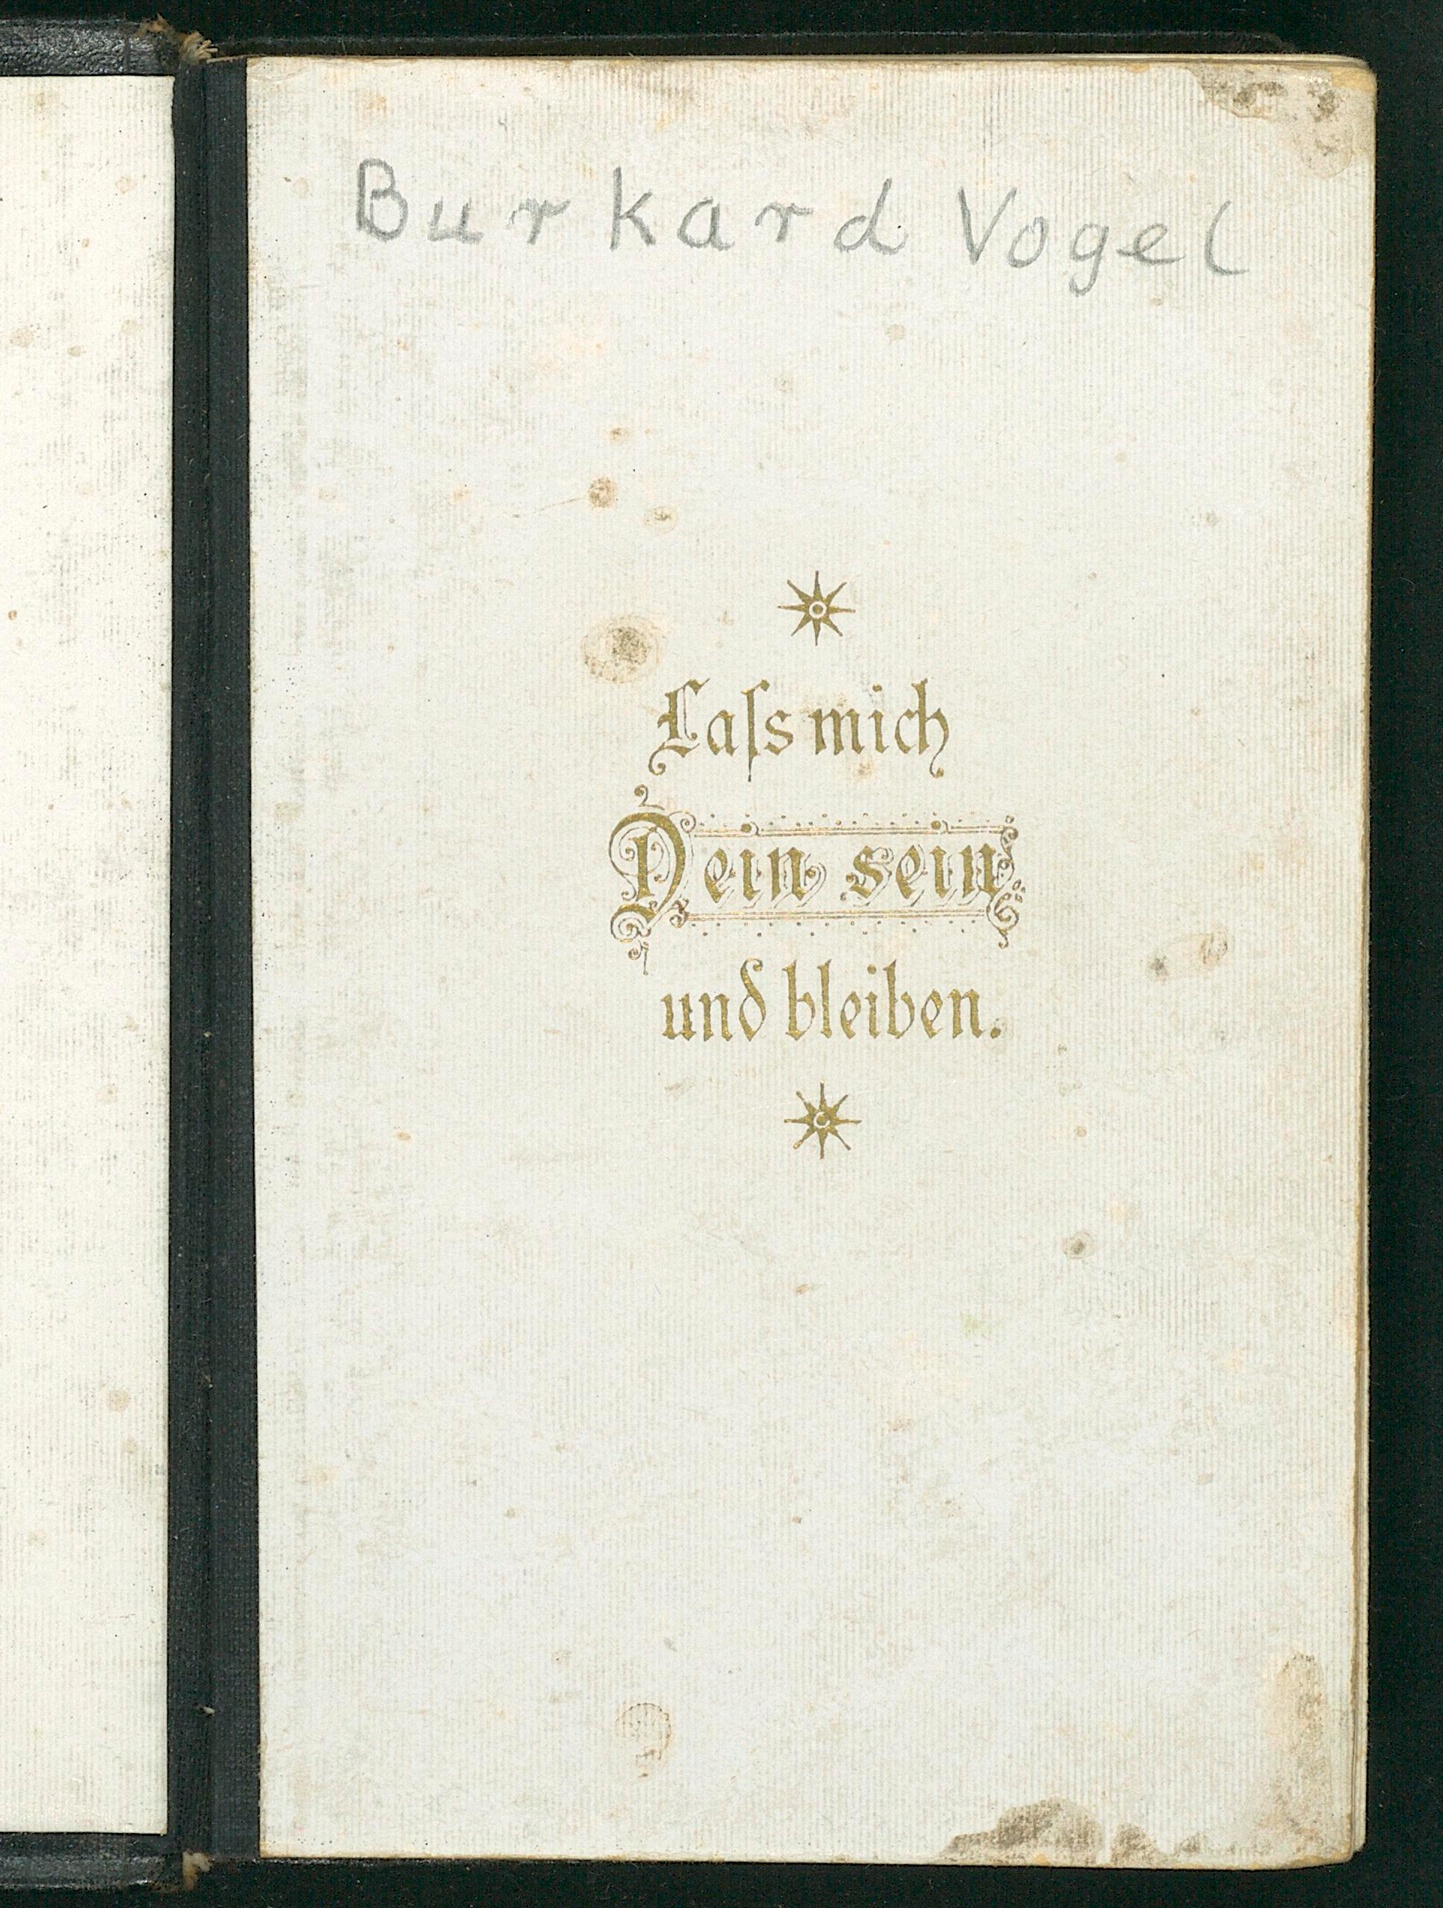 Burkard Vogel
Laſs mich
Dein sein
und bleiben.